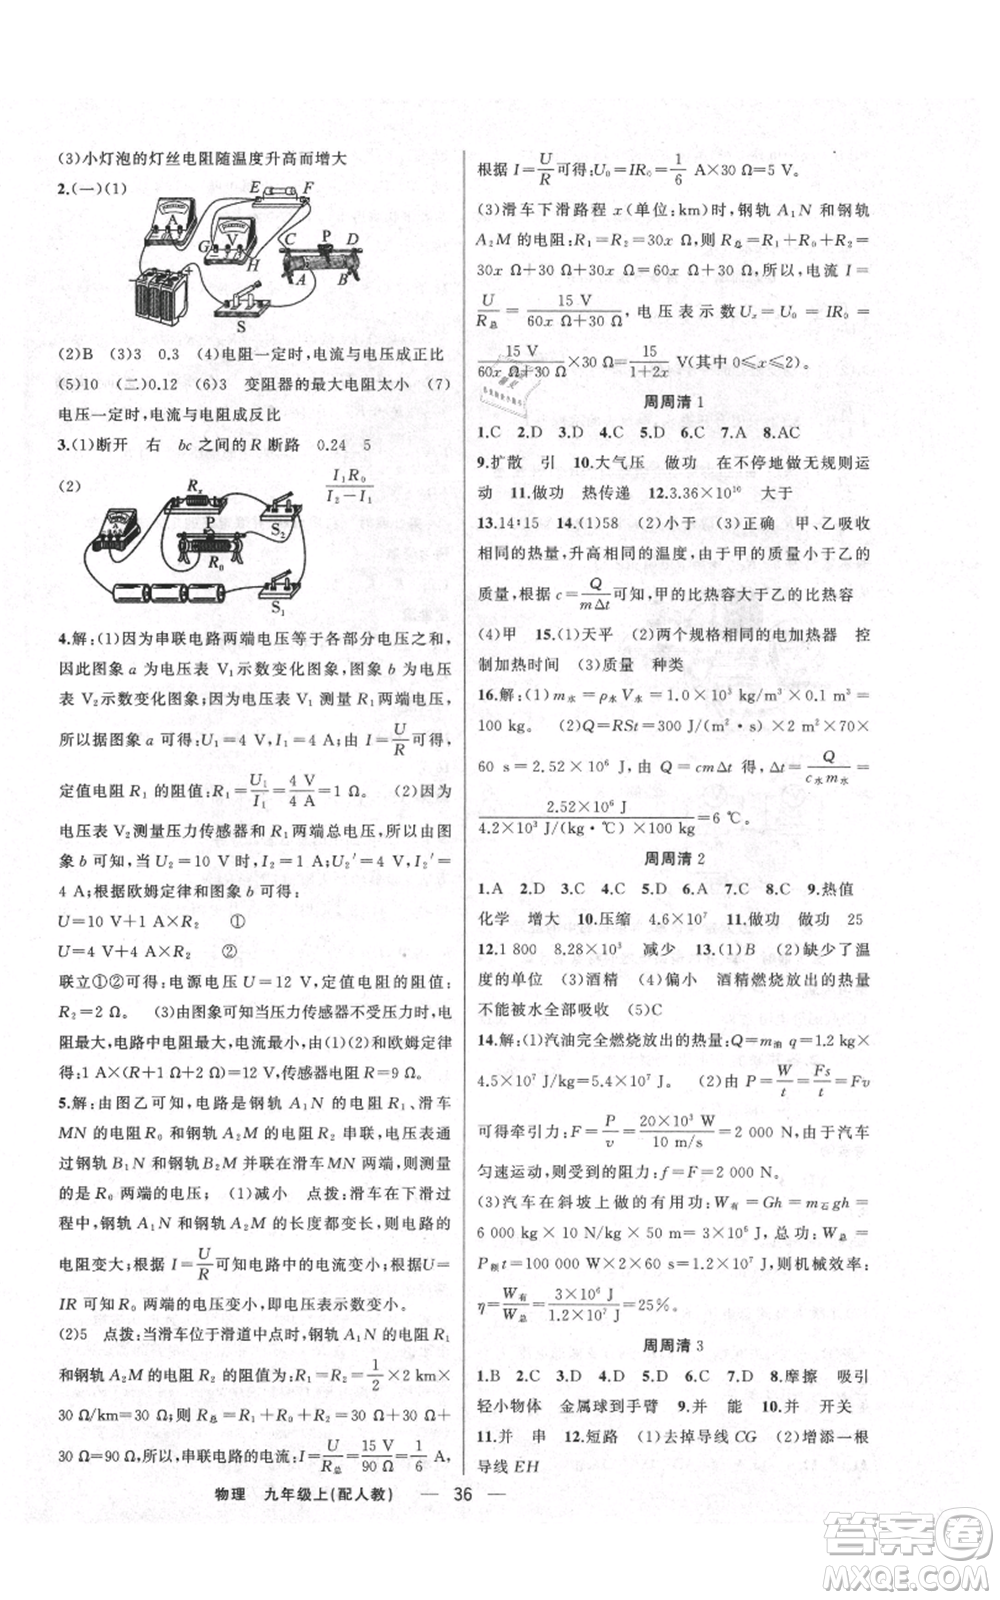 (3)小灯泡的灯丝电阻随温度升高而增大
2.(一)(1)
E F
A V G H C P D A B S
(2)B (3)3 0.3 (4)电阻一定时,电流与电压成正比
(5)10 (二)0.12 (6)3 变阻器的最大电阻太小 (7)
电压一定时,电流与电阻成反比
3.(1)断开 右 bc 之间的 R 断路 0.24 5
(2) I₁R₀/(I₂-I₁)
Rₓ A P R₀ S₂ S₁
4.解:(1)因为串联电路两端电压等于各部分电压之和,
因此图象 a 为电压表 V₁示数变化图象,图象 b 为电压
表 V₂示数变化图象;因为电压表 V₁ 测量 R₁ 两端电压,
所以据图象 a 可得:U₁=4 V,I₁=4 A;由 I=U/R可得,
定值电阻 R₁ 的阻值:R₁=U₁/I₁=4 V/4 A=1 Ω。 (2)因为
电压表 V₂测量压力传感器和 R₁ 两端总电压,所以由图
象 b 可知,当 U₂=10 V 时,I₂=1 A;U₂′=4 V 时,I₂′=
4 A;根据欧姆定律和图象 b 可得:
U=10 V+1 A×R₂ ①
U=4 V+4 A×R₂ ②
联立①②可得:电源电压 U=12 V,定值电阻的阻值:
R₂=2 Ω。 (3)由图象可知当压力传感器不受压力时,电
阻最大,电路中电阻最大,电流最小,由(2)和欧姆定律可
得:1 A×(R+1 Ω+2 Ω)=12 V,解得:R=9 Ω。
5.解:由图乙可知,电路是钢轨 A₁N 的电阻 R₁、滑车
MN 的电阻 R₀ 和钢轨 A₂M 的电阻 R₂ 串联,电压表通
过钢轨 B₁N 和钢轨 B₂M 并联在滑车MN 两端,则测量
的是 R₀ 两端的电压; (1)减小 点拨:滑车在下滑过
程中,钢轨 A₁N 和钢轨 A₂M 的长度都变长,则电路的
电阻变大;根据 I=U/R可知,电路的电流变小;根据U=
IR 可知 R₀ 两端的电压变小,即电压表示数变小。
(2)5 点拨:当滑车位于滑道中点时,钢轨 A₁N 的电阻 R₁
和钢轨 A₂M 的电阻 R₂ 的阻值为:R₁=R₂=1/2×2×
30 Ω=30 Ω;则 R总=R₁+R₀+R₂=30 Ω+30 Ω+
30 Ω=90 Ω,所以,串联电路的电流:I=U/R总=15 V/90 Ω=1/6A。
根据 I=U/R可得:U₀=IR₀=1/6 A×30 Ω=5 V。
(3)滑车下滑路程 x(单位:km)时,钢轨 A₁N 和钢轨
A₂M 的电阻:R₁=R₂=30x Ω,则 R总=R₁+R₀+R₂=
30x Ω+30 Ω+30x Ω=60x Ω+30 Ω,所以,电流 I=
U/R总=15 V/(60x Ω+30 Ω),电压表示数Uₓ=U₀=IR₀=
15 V/(60x Ω+30Ω)×30 Ω=15/(1+2x)V(其中 0≤x≤2)。
周周清 1
1.C 2.D 3.D 4.C 5.D 6.C 7.A 8.AC
9.扩散 引 10.大气压 做功 在不停地做无规则运
动 11.做功 热传递 12.3.36×10¹⁰ 大于
13.14∶15 14.(1)58 (2)小于 (3)正确 甲、乙吸收
相同的热量,升高相同的温度,由于甲的质量小于乙的
质量,根据 c=Q/(mΔt)可知,甲的比热容大于乙的比热容
(4)甲 15.(1)天平 (2)两个规格相同的电加热器 控
制加热时间 (3)质量 种类
16.解:(1)m水=ρ水V水=1.0×10³ kg/m³×0.1 m³=
100 kg。 (2)Q=RSt=300 J/(m²·s)×2 m²×70×
60 s=2.52×10⁶ J (3)由 Q=cmΔt 得,Δt=Q/(c水m水)=
2.52×10⁶ J/(4.2×10³ J/(kg·℃)×100 kg)=6 ℃。
周周清 2
1.A 2.D 3.C 4.C 5.D 6.A 7.D 8.C 9.热值
化学 增大 10.压缩 4.6×10⁷ 11.做功 做功 25
12.1 800 8.28×10³ 减少 13.(1)B (2)缺少了温
度的单位 (3)酒精 (4)偏小 酒精燃烧放出的热量
不能被水全部吸收 (5)C
14.解:(1)汽油完全燃烧放出的热量:Q=m油 q=1.2 kg×
4.5×10⁷ J/kg=5.4×10⁷ J。 (2)由 P=W/t=Fs/t=Fv
可得牵引力:F=P/v=20×10³ W/10 m/s=2 000 N。由于汽车
匀速运动,则受到的阻力:f=F=2 000 N。
(3)汽车在斜坡上做的有用功:W有=Gh=m石gh=
6 000 kg×10 N/kg×50 m=3×10⁶ J,总功:W总=
P额t=100 000 W×2×60 s=1.2×10⁷ J,则机械效率:
η=W有/W总=3×10⁶ J/1.2×10⁷ J=25%。
周周清 3
1.B 2.C 3.D 4.C 5.C 6.D 7.D 8.摩擦 吸引
轻小物体 金属球到手臂 9.并 能 10.并 开关
11.并 串 12.短路 (1)去掉导线 CG (2)增添一根
导线 EH
物理 九年级上(配人教) — 36 —
答案卷
MXQE.COM